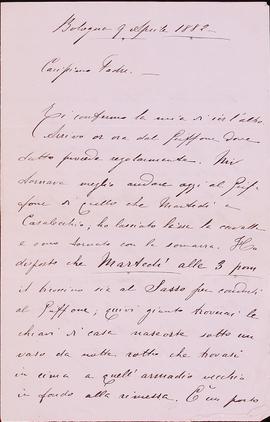 Bologna 9 Aprile 1882
Carissimo Padre.
Vi confermo la mia di ier l'altro
Arrivo or ora dal Puffone dove
tutto procede regolarmente. Mi
tornava meglio andare oggi al Puf-
fone di quello che Martedì a
Casalecchio, ho lasciato le cavalle
e sono tornato con la somarra. Ho
disposto che Martedì alle 3 pom
il biroccino sia al Sasso per condurti
al Puffone, quivi giunto troverai le
chiavi di casa nascoste sotto un
vaso da notte rotto che trovasi
in cima a quell'armadio vecchio
in fondo alla rimessa. È un posto